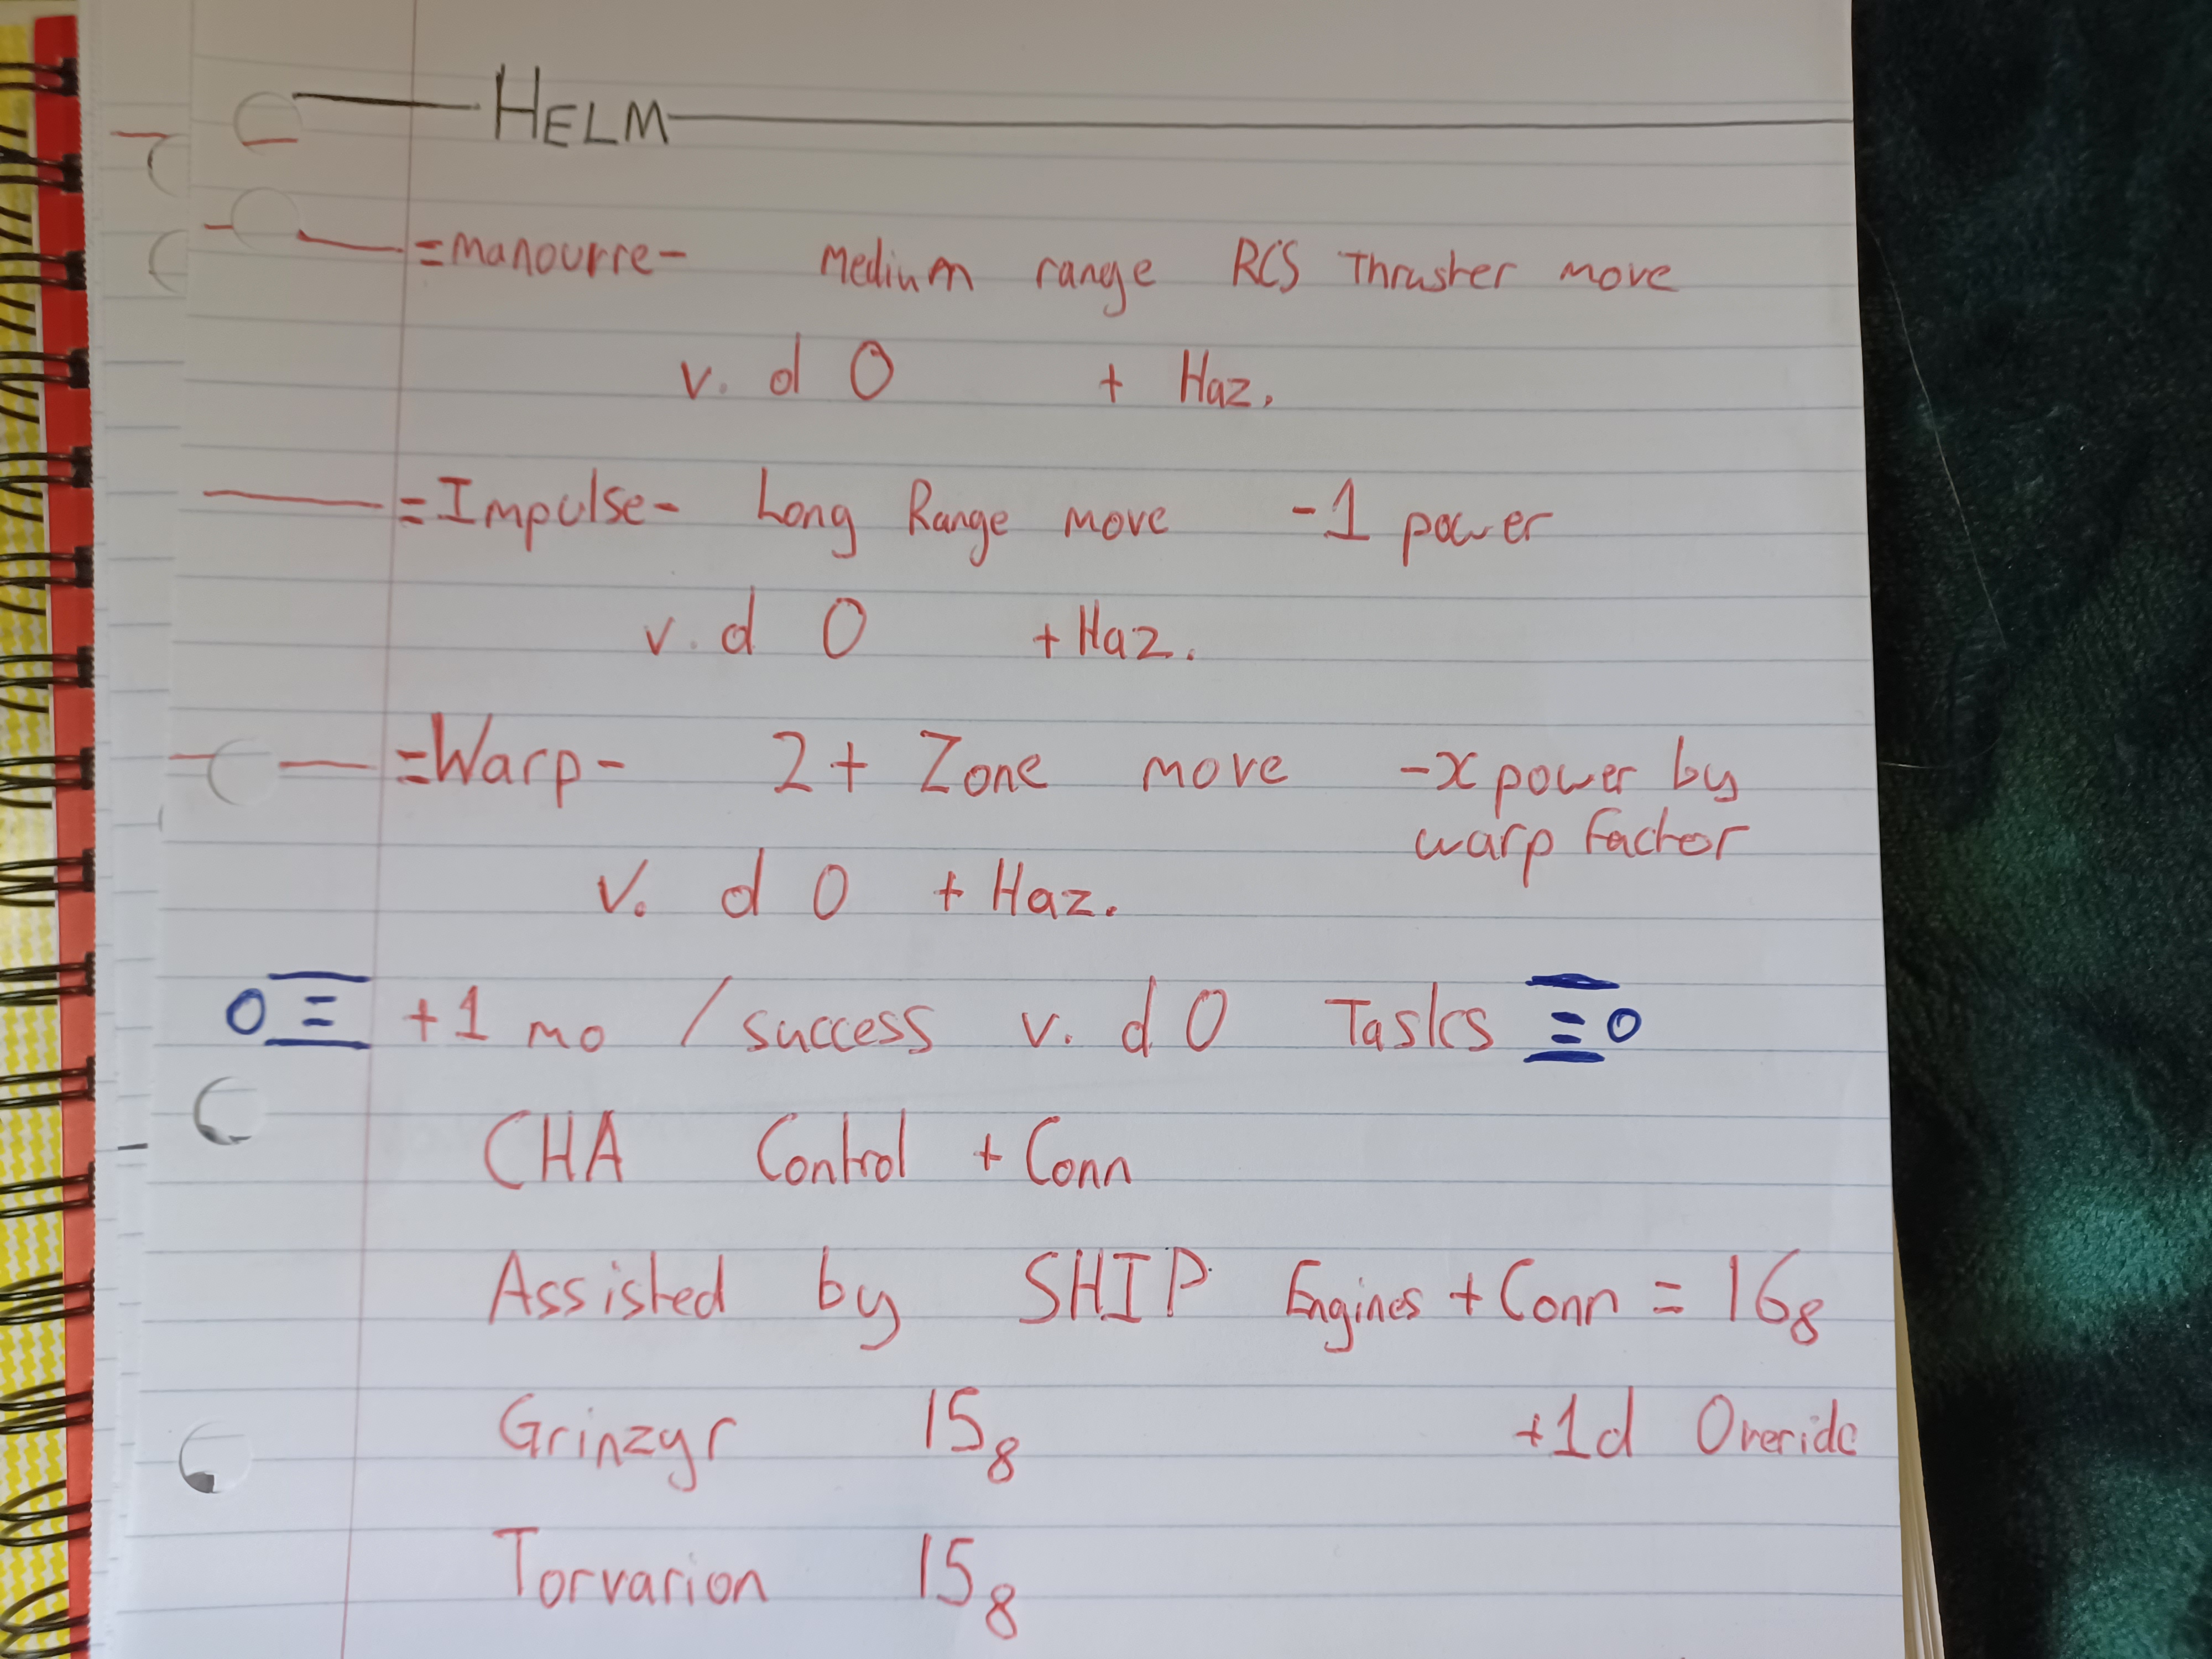 HELM
=Manourre- Medium range RCS Thruster move
v. d 0 + Haz.
=Impulse- Long Range move -1 power
v. d 0 + Haz.
=Warp- 2+ Zone move -x power by
warp factor
V. d 0 + Haz.
+1 mo / success v. d 0 Tasks
CHA Control + Conn
Assisted by SHIP Engines + Conn = 16₈
Grinzyr 15₈ +1d Overide
Torvarion 15₈